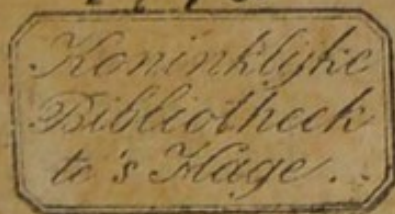 Koninklijke
Bibliotheek
te 's Hage..